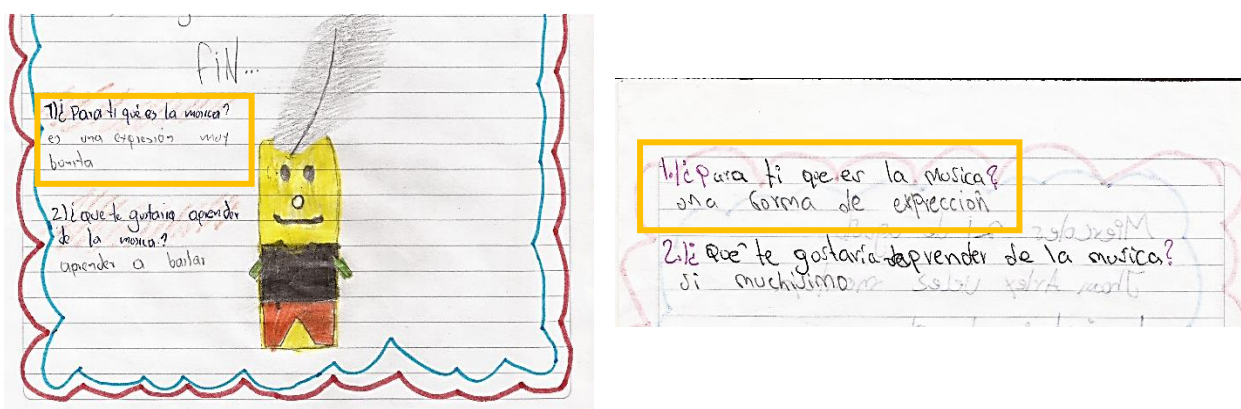 FIN...
1)¿Para ti qué es la musica?
es una expresión muy
bonita
2)¿que te gustaria aprender
de la musica?
aprender a bailar
1.¿Para ti que es la musica?
una forma de expreccion
2.¿Que te gostaria deaprender de la musica?
si muchisimo